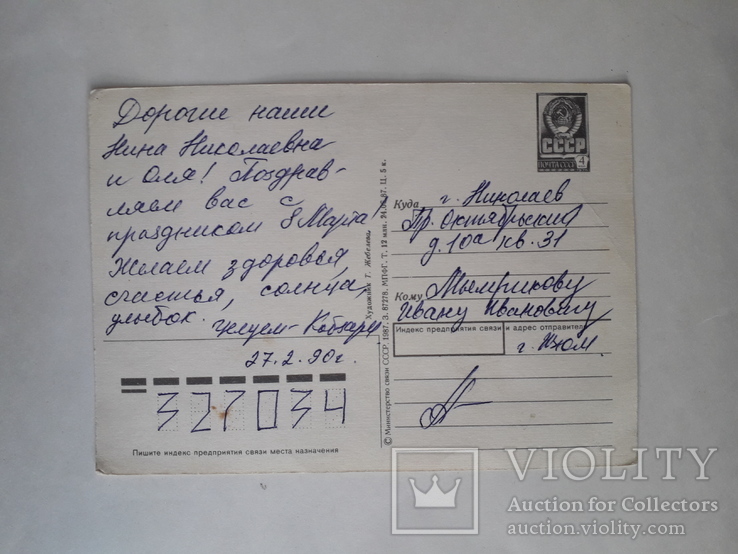 Дорогие наши
Нина Николаевна
и Оля! Поздрав-
ляем вас с
праздником 8 Марта!
Желаем здоровья,
счастья, солнца,
улыбок. Целуем - Кобзарь
27.2.90г.
327034
Пишите индекс предприятия связи места назначения
© Министерство связи СССР. 1987. З. 87278. МПФГ. Т. 12 млн. 24.02.87. Ц. 5 к.
Художник Т. Жебелева
СССР
ПОЧТА СССР
4
Куда г. Николаев
Пр. Октябрьский
д. 10а кв. 31
Кому Мымрикову
Ивану Ивановичу
Индекс предприятия связи и адрес отправителя
VIOLITY
Auction for Collectors
auction.violity.com